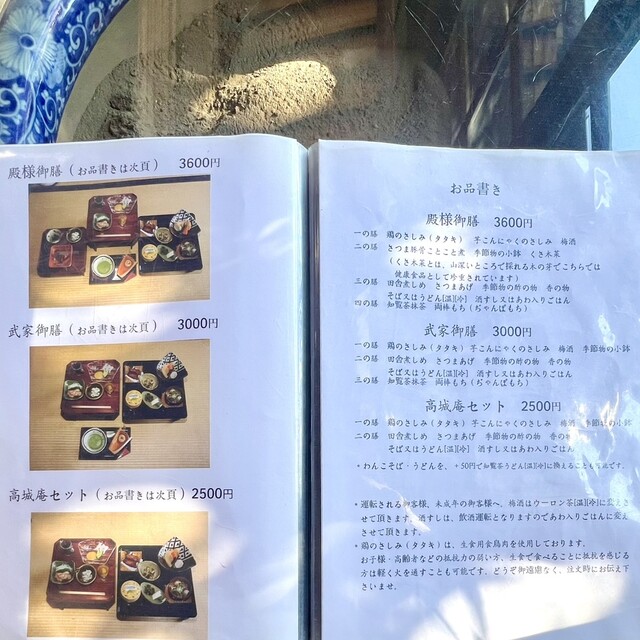 殿様御膳(お品書きは次頁) 3600円
武家御膳(お品書きは次頁) 3000円
高城庵セット(お品書きは次頁) 2500円
お品書き
殿様御膳 3600円
一の膳 鶏のさしみ(タタキ) 芋こんにゃくのさしみ 梅酒
二の膳 さつま豚骨ことこと煮 季節物の小鉢 くさ木菜
(くさ木菜とは、山深いところで採れる木の芽でこちらでは
健康食品として珍重されています)
三の膳 田舎煮しめ さつまあげ 季節物の酢の物 香の物
そば又はうどん[温][冷] 酒すし又はあわ入りごはん
四の膳 知覧茶抹茶 両棒もち(ぢゃんぼもち)
武家御膳 3000円
一の膳 鶏のさしみ(タタキ) 芋こんにゃくのさしみ 梅酒 季節物の小鉢
二の膳 田舎煮しめ さつまあげ 季節物の酢の物 香の物
そば又はうどん[温][冷] 酒すし又はあわ入りごはん
三の膳 知覧茶抹茶 両棒もち(ぢゃんぼもち)
高城庵セット 2500円
一の膳 鶏のさしみ(タタキ) 芋こんにゃくのさしみ 梅酒 季節物の小鉢
二の膳 田舎煮しめ さつまあげ 季節物の酢の物 香の物
そば又はうどん[温][冷] 酒すし又はあわ入りごはん
+わんこそば・うどんを、+50円で知覧茶うどん[温][冷]に換えることも可能です。
*運転される御客様、未成年の御客様へ、梅酒はウーロン茶[温][冷]に変えさ
せて頂きます。酒すしは、飲酒運転となりますのであわ入りごはんに変え
させて頂きます。
*鶏のさしみ(タタキ)は、生食用食鳥肉を使用しております。
お子様・高齢者などの抵抗力の弱い方、生食で食べることに抵抗を感じる
方は軽く火を通すことも可能です。どうぞ御遠慮なく、注文時にお伝え下
さいませ。